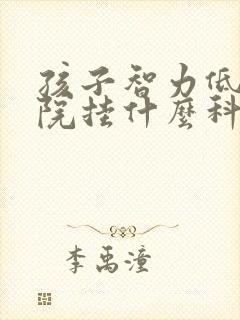 孩子智力低
院挂什麼科
李禹潼